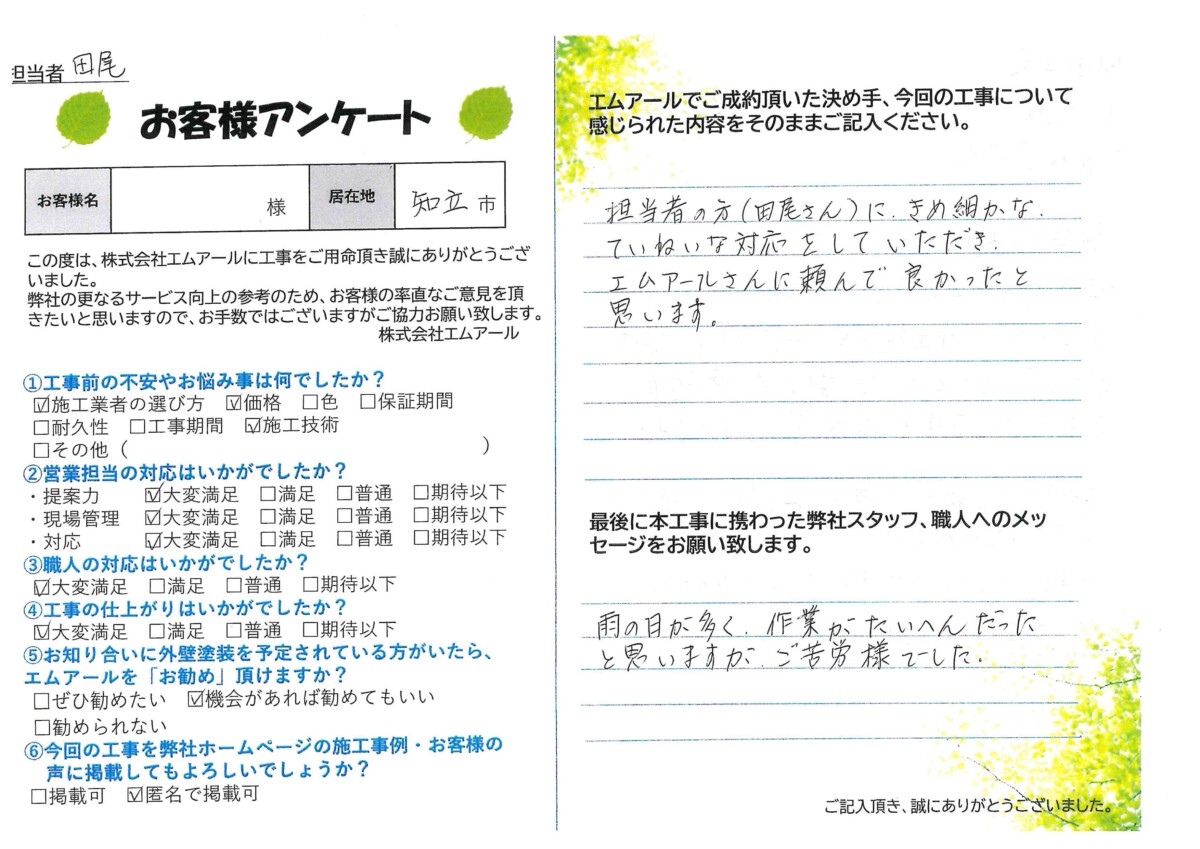 担当者 田尾
お客様アンケート
お客様名 様 居在地 知立 市
この度は、株式会社エムアールに工事をご用命頂き誠にありがとうござ
いました。
弊社の更なるサービス向上の参考のため、お客様の率直なご意見を頂
きたいと思いますので、お手数ではございますがご協力お願い致します。
株式会社エムアール
①工事前の不安やお悩み事は何でしたか？
☑施工業者の選び方 ☑価格 □色 □保証期間
□耐久性 □工事期間 ☑施工技術
□その他（ ）
②営業担当の対応はいかがでしたか？
・提案力 ☑大変満足 □満足 □普通 □期待以下
・現場管理 ☑大変満足 □満足 □普通 □期待以下
・対応 ☑大変満足 □満足 □普通 □期待以下
③職人の対応はいかがでしたか？
☑大変満足 □満足 □普通 □期待以下
④工事の仕上がりはいかがでしたか？
☑大変満足 □満足 □普通 □期待以下
⑤お知り合いに外壁塗装を予定されている方がいたら、
エムアールを「お勧め」頂けますか？
□ぜひ勧めたい ☑機会があれば勧めてもいい
□勧められない
⑥今回の工事を弊社ホームページの施工事例・お客様の
声に掲載してもよろしいでしょうか？
□掲載可 ☑匿名で掲載可
エムアールでご成約頂いた決め手、今回の工事について
感じられた内容をそのままご記入ください。
担当者の方(田尾さん)に、きめ細かな、
ていねいな対応をしていただき、
エムアールさんに頼んで良かったと
思います。
最後に本工事に携わった弊社スタッフ、職人へのメッ
セージをお願い致します。
雨の日が多く、作業がたいへんだった
と思いますが、ご苦労様でした。
ご記入頂き、誠にありがとうございました。